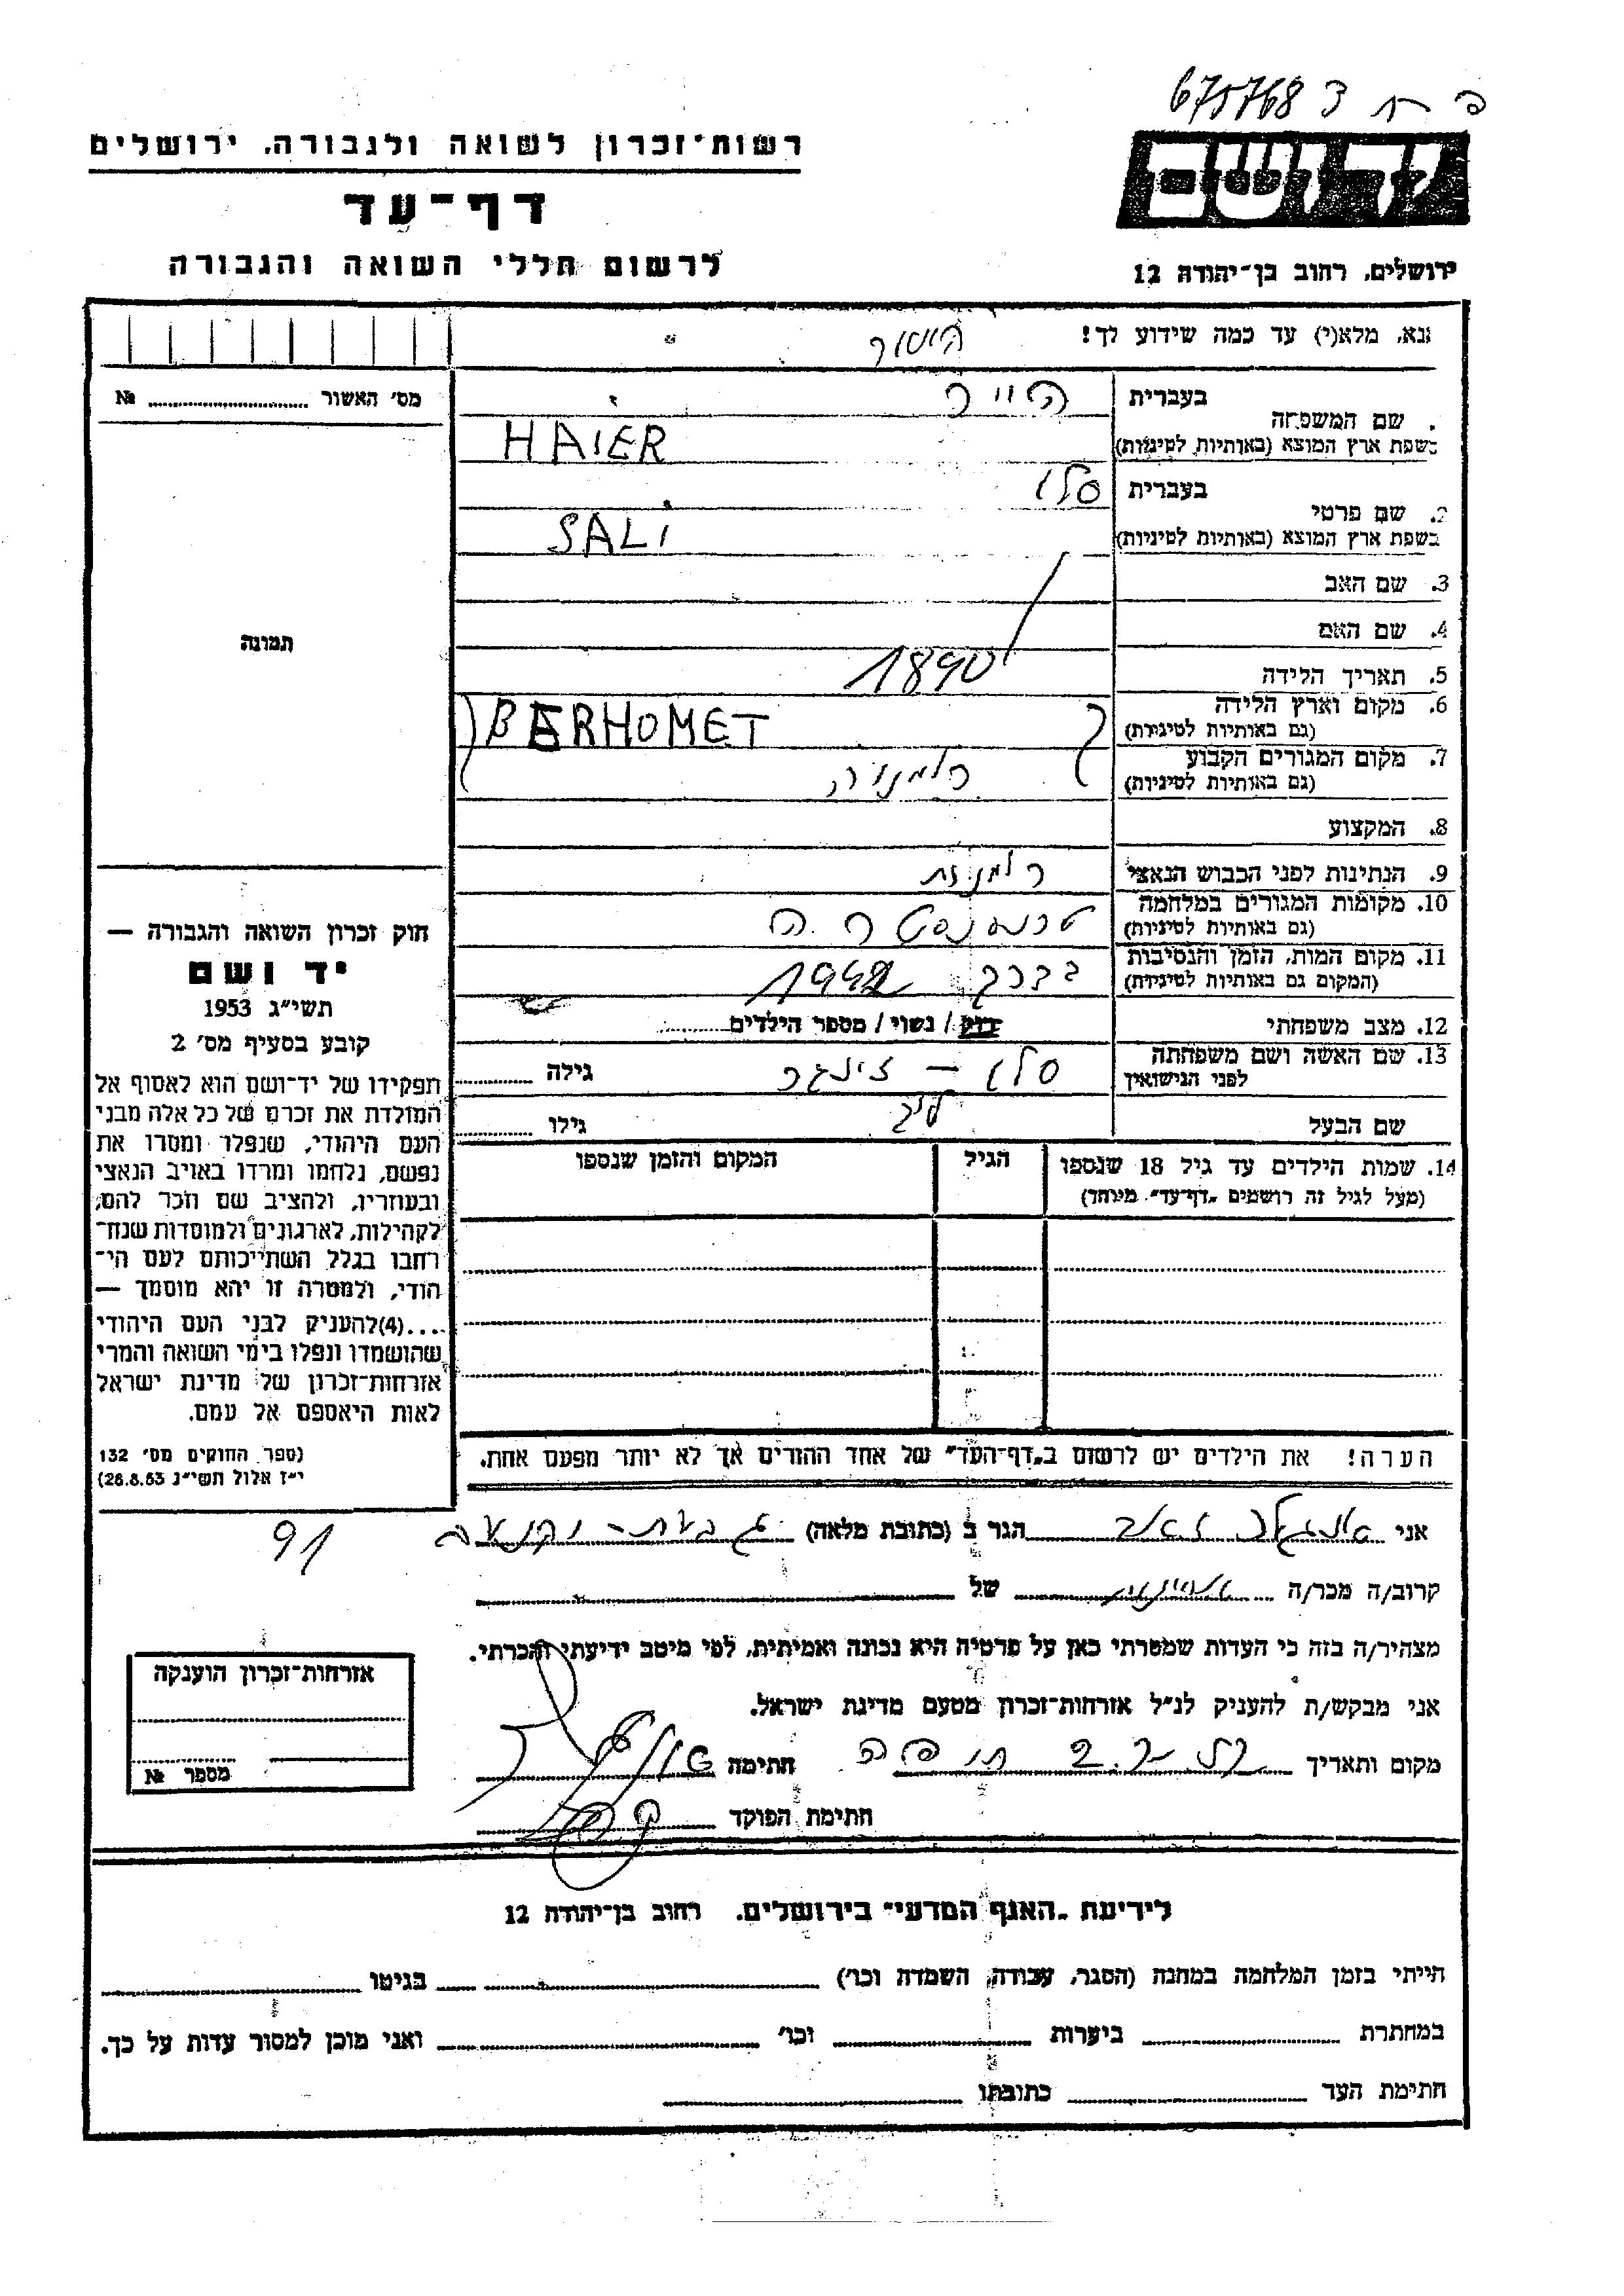 675768
רשות־זכרון לשואה ולגבורה, ירושלים
יד ושם
דף־עד
לרשום חללי השואה והגבורה
ירושלים, רחוב בן־יהודה 12
נא, מלא(י) עד כמה שידוע לך!
מס׳ האשור № 
בעברית
הייר
שם המשפחה
בשפת ארץ המוצא (באותיות לטיניות)
HAIER
בעברית
סלי
2. שם פרטי
בשפת ארץ המוצא (באותיות לטיניות)
SALI
3. שם האב
4. שם האם
תמונה
5. תאריך הלידה
1890
6. מקום וארץ הלידה
(גם באותיות לטיניות)
BERHOMET
7. מקום המגורים הקבוע
(גם באותיות לטיניות)
רומניה
8. המקצוע
9. הנתינות לפני הכבוש הנאצי
רומנית
10. מקומות המגורים במלחמה
(גם באותיות לטיניות)
11. מקום המות, הזמן והנסיבות
(המקום גם באותיות לטיניות)
1942
12. מצב משפחתי
רווק / נשוי / מספר הילדים
13. שם האשה ושם משפחתה
לפני הנישואין
סלי – זינגר
גילה
שם הבעל
גילו
חוק זכרון השואה והגבורה —
יד ושם
תשי״ג 1953
קובע בסעיף מס׳ 2
תפקידו של יד־ושם הוא לאסוף אל
המולדת את זכרם של כל אלה מבני
העם היהודי, שנפלו ומסרו את
נפשם, נלחמו ומרדו באויב הנאצי
ובעוזריו, ולהציב שם וזכר להם,
לקהילות, לארגונים ולמוסדות שנח־
רבו בגלל השתייכותם לעם הי־
הודי, ולמטרה זו יהא מוסמך —
...(4)להעניק לבני העם היהודי
שהושמדו ונפלו בימי השואה והמרי
אזרחות־זכרון של מדינת ישראל
לאות היאספם אל עמם.
(ספר החוקים מס׳ 132
י״ז אלול תשי״ג 28.8.53)
14. שמות הילדים עד גיל 18 שנספו
(מעל לגיל זה רושמים „דף־עד״ מיוחד)
הגיל
המקום והזמן שנספו
הערה! את הילדים יש לרשום ב„דף־העד״ של אחד ההורים אך לא יותר מפעם אחת.
אני
הגר ב (כתובת מלאה)
91
קרוב/ה מכר/ה
של
מצהיר/ה בזה כי העדות שמסרתי כאן על פרטיה היא נכונה ואמיתית, לפי מיטב ידיעתי והכרתי.
אני מבקש/ת להעניק לנ״ל אזרחות־זכרון מטעם מדינת ישראל.
מקום ותאריך
חיפה
חתימה
חתימת הפוקד
אזרחות־זכרון הוענקה
מספר №
לידיעת „האגף המדעי״ בירושלים, רחוב בן־יהודה 12
הייתי בזמן המלחמה במחנה (הסגר, עבודה, השמדה וכו׳)
בגיטו
במחתרת
ביערות
וכו׳
ואני מוכן למסור עדות על כך.
חתימת העד
כתובתו